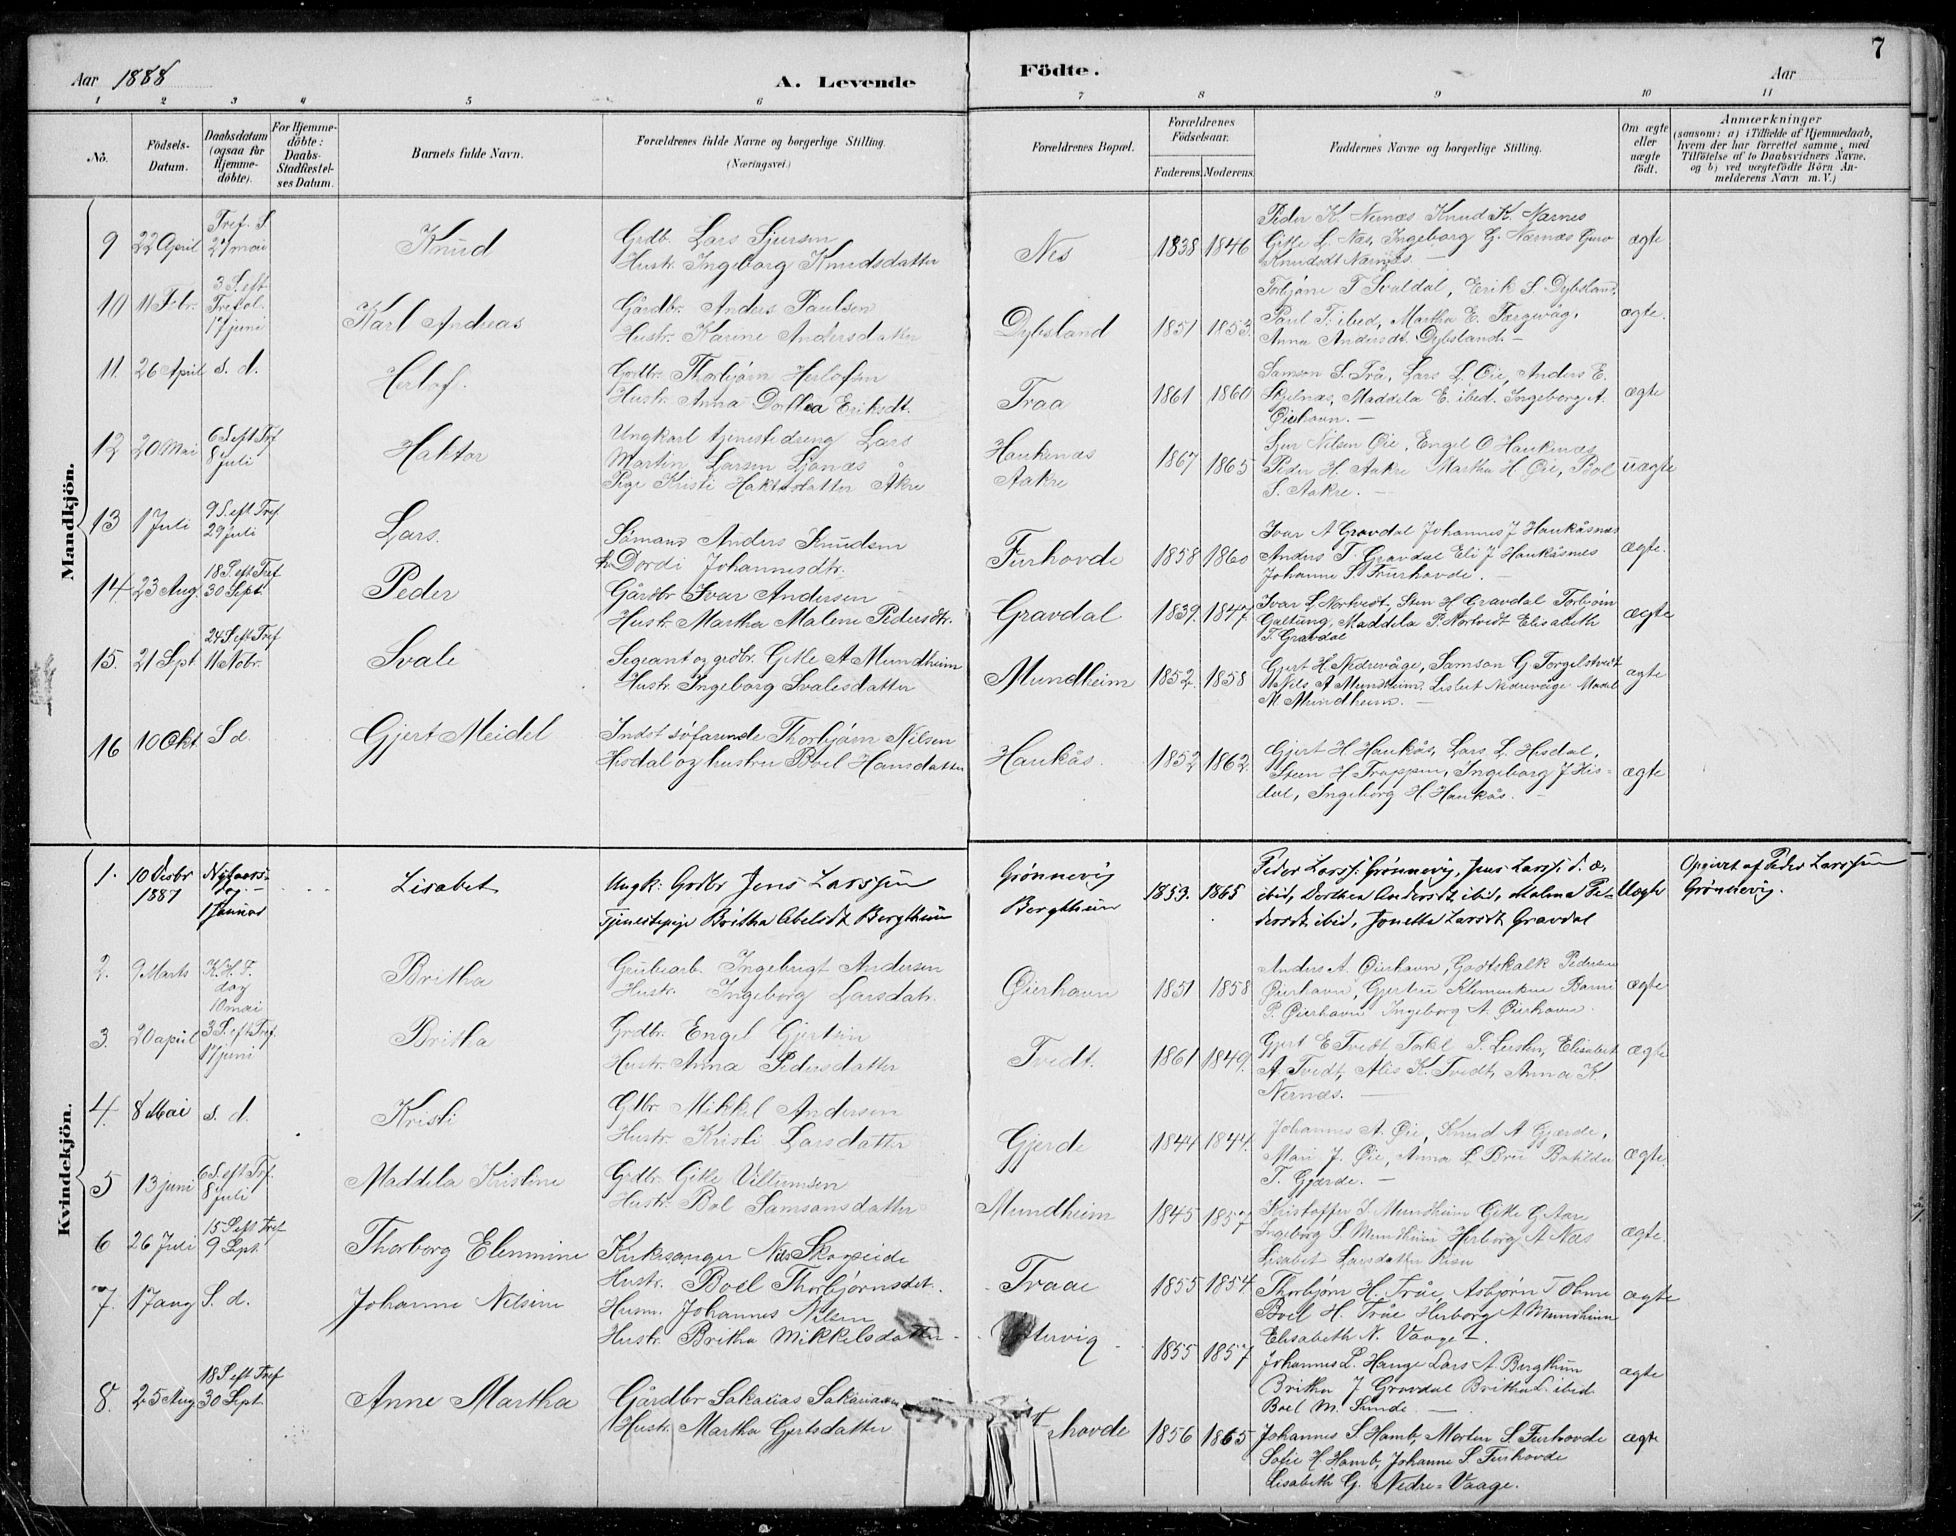 7
Aar 1888 A. Levende Födte. Aar
1 2 3 4 5 6 7 8 9 10 11
No. Födsels-Datum. Daabsdatum (ogsaa for Hjemme-döbte). For Hjemme-döbte: Daabs-Stadfæstel-ses Datum. Barnets fulde Navn. Forældrenes fulde Navne og borgerlige Stilling. (Næringsvei.) Forældrenes Bopæl. Forældrenes Födselsaar. Faderens. Moderens. Faddernes Navne og borgerlige Stilling. Om ægte eller uægte födt. Anmærkninger (saasom: a) i Tilfælde af Hjemmedaab, hvem der har forrettet samme, med Tilföielse af to Daabsvidners Navne, og b) ved uægtefödte Börn An-melderens Navn m. V.)
Mandkjön.
9 22 April Tref. S. 27 mai Knud
Grdb. Lars Sjursen
Hustr. Ingeborg Knudsdatter
Nes 1838 1846
Peder K. Nernæs Knud K. Nærnes
Gitle L. Næs, Ingeborg G. Nærnæs Guro
Knudsdt Nærnæs. —
ægte
10 11 Febr. 3 S. eft Trefol. 17 juni Karl Andreas
Gårdbr. Anders Paulsen
Hustr. Karine Andersdatter
Dybsland 1851 1853.
Torbjöne T Svaldal, Erik S. Dybsland,
Paul T. ibid, Martha E. Færgevåg,
Anna Andersdt. Dybsland. —
ægte.
11. 26 April s. d. Herlof.
Grdbr. Thorbjørn Herlofsen
Hustr. Anna Dorthea Eriksdt.
Traa 1861 1860
Samson S. Trå, Lars L. Øie, Anders E.
Skjelnæs, Maddela E. ibid. Ingeborg A.
Øierhavn. —
ægte
12 20 Mai 6 S eft Tref 8 juli Haktor
Ungkarl tjenestedreng Lars
Martin Larsen Ljonæs
Pige Kristi Haktorsdatter Åkre
Haukenæs
Aakre
1867 1865
Sjur Nilsen Øie, Engel O Haukenæs
Peder H. Aakre Martha H. Øie, Bol
S. Aakre. —
uægte
13 1 Juli 9 S. eft Tref 29 juli Lars.
Sømans Anders Knudsen
h. Dordi Johannesdtr.
Furhovde 1858 1860
Ivar A Gravdal Johannes J Haukåsnæs
Anders T. Gravdal Eli J Haukåsnes
Johanne S. Frurhovde. —
ægte.
14 23 Aug. 18 S. eft Tref 30 Sept. Peder
Gårdbr Ivar Andersen
Hustr. Martha Malene Pedersdtr.
Gravdal 1839. 1847.
Ivar L. Nortvedt, Sten H Gravdal Torbjörn
Galtung, Maddela P. Nortvedt Elisabeth
T. Gravdal
ægte
15. 21 Spt. 24 S eft Tref 11 Nobr. Svale
Segeant og grdbr. Gitle A Mundheim
Hustr. Ingeborg Svalesdatter
Mundheim 1852. 1858
Gjert H. Nedrevåge, Samson G Torgelstveit
Nils A Mundheim. Lisbet Nedrevåge Madel
M Mundheim. —
ægte
16 10 Okt S d. Gjert Meidel
Indst søfarende Thorbjørn Nilsen
Hisdal og hustru Boel Hansdatter
Haukås. 1852 1862.
Gjert H. Haukås, Lars L. Hisdal,
Steen H. Trappen, Ingeborg J His-
dal, Ingeborg H. Haukås. —
ægte
Kvindekjön.
1. 10 Desbr 1887 Nytaars-dag. — 1 Januar Lisabet
Ungk: Grdbr Jens Larssen
Tjenestepige Britha Abelsdt. Bergtheim
Grønnevig
Bergtheim
1853. 1865
Peder Larss. Grønnevig, Jens Larss. d. æ.
ibid, Dorthea Andersdt. ibid, Malena Pe-
dersdt. ibid, Jonetta Larsdt. Gravdal
Uægte
Opgivet af Peder Larssen
Grønnevig.
2. 9 Marts K. H. F. dag 10 mai Britha
Grubearb. Ingebrigt Andersen
Hustr. Ingeborg Larsdatr.
Øierhavn 1851 1858
Anders A. Øierhavn, Godtskalk Pedersen
Øierhavn, Gjertru Klementsen Barni
P. Øierhavn Ingeborg A. Øierhavn
ægte
3. 20 april 3 S. eft Tref. 17 juni Britha
Grdbr. Engel Gjertsen
Hustr. Anna Pedersdatter
Tvedt. 1861 1849.
Gjert E Tvedt Torkel T. Lerslen, Elisabet
A. Tvedt, Alis K. Tvedt, Anna K.
Nernæs. —
ægte
4. 8 Mai s. d. Kristi
Gdbr. Mikkel Andersen
Hustr. Kristi Larsdatter
Gjerde 1844 1844.
Johannes A. Øie, Knud A Gjærde,
Mari J. Øie, Anna L. Bru Botilde
T. Gjærde. —
ægte.
5 13 juni 6 S. eft Tref. 8 juli Maddela Kristine
Grdbr. Gitle Villumsen
Hustr. Bol Samsonsdatter
Mundheim 1845 1857
Kristoffer I. Mundheim Gitle G Aar
Ingeborg S. Mundheim Herborg A. Næs
Lisabet Larsdatter
ægte.
6 26 Juli 15 S eft Tref 9 Sept. Thorborg Elenmine
Kirksanger Nils Skogseide
Hustr. Boel Thorbjørnsdet.
Traae 1855 1854.
Thorbjørn H. Tråe, Asbjørn T Ohme
Boel H. Tråe Herborg A Mundheim
Elisabeth N. Vaage. —
ægte
7. 17 aug S. d. Johanne Nilsine
Husm. Johannes Nilsen
Hustr. Britha Mikkelsdatter
tervig 1855 1857
Johannes L. Hauge Lars A. Bergtheim
Britha J Gravdal Britha L. ibid.
Boel M. Sunde. —
ægte
8. 25 Aug 18 S eft Tref 30 Sept. Anne Martha
Gårdbr Sakarias Sakariassen
Hustr. Martha Gjertsdatter
hovde 1856 1865
Johannes S Hamb, Morten S Furhovde
Sofie H. Hamb, Johanne S. Furhovde
Elisabeth G. Nedre-Vaage.
ægte